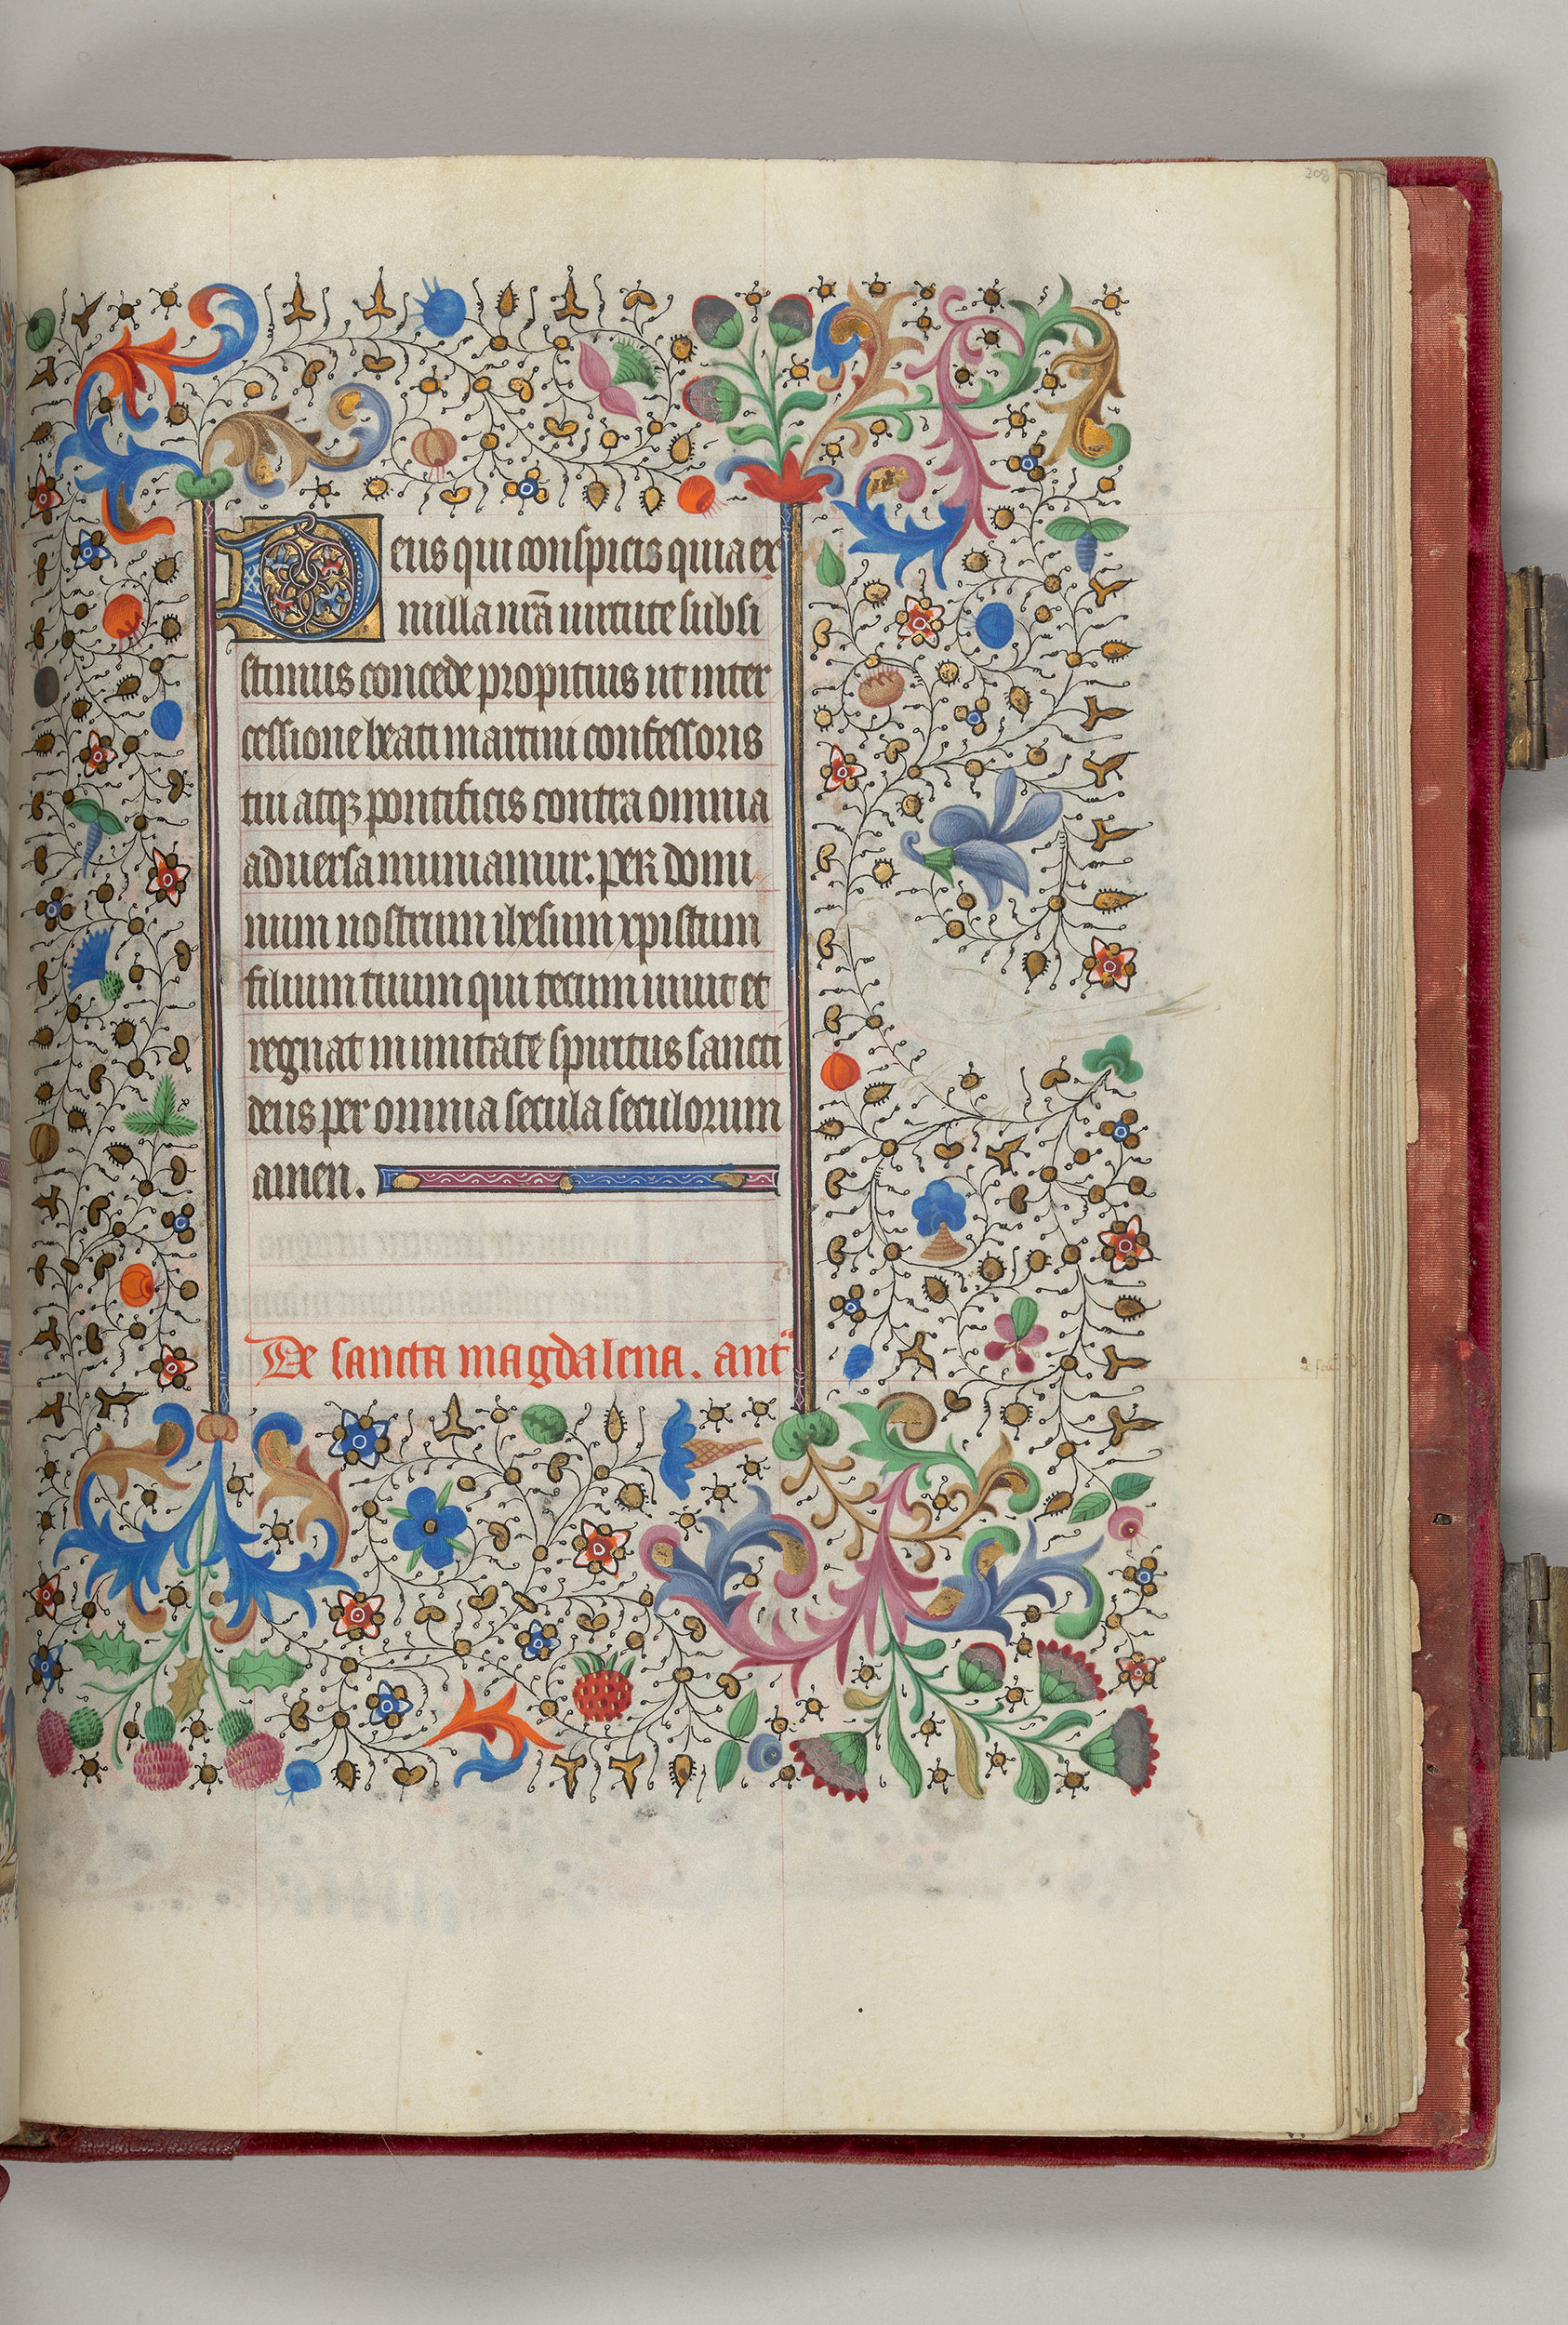 208
Deus qui conspicis quia ex
nulla nr̄a uirtute subsi
stimus concede propitius ut inter
cessione beati martini confessoris
tui atqꝫ pontificis contra omnia
aduersa muniamur. per domi
num nostrum ihesum xpistum
filium tuum qui tecum uiuit et
regnat in unitate spiritus sancti
deus per omnia secula seculorum
amen.
De sancta magdalena. ant